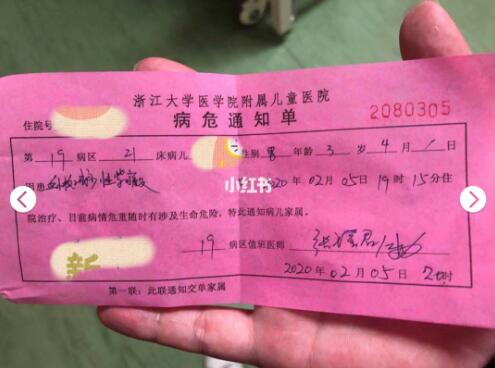 浙江大学医学院附属儿童医院
病危通知单
2080305
住院号
第 19 病区 21 床病儿 性别 男 年龄 3 岁 4 月 1 日
因患 2020 年 02 月 05 日 19 时 15 分住
小红书
院治疗、目前病情危重随时有涉及生命危险，特此通知病儿家属。
新
19 病区值班医师
2020 年 02 月 05 日 时
第一联：此联通知交单家属